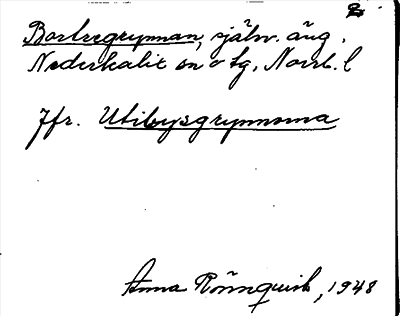 Bortregrynnan, självst. äng.
Nederkalix sn o tg, Norrb. l
Jfr. Utibysgrynnorna
Anna Rönnquist, 1948